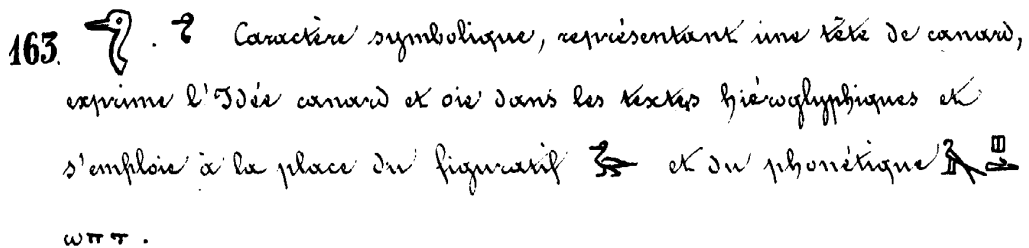 163. Caractère symbolique, représentant une tête de canard,
exprime l'Idée canard et oie dans les textes hiéroglyphiques et
s'emploie à la place du figuratif et du phonétique